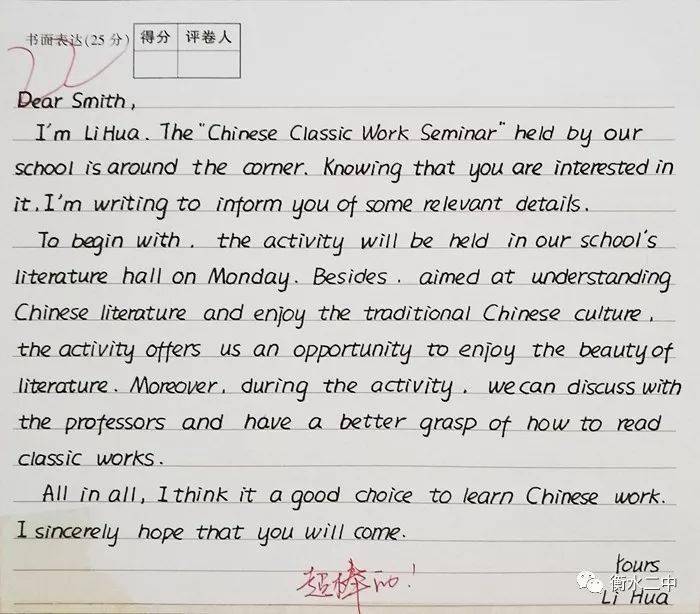 书面表达(25分) 得分 评卷人
22
Dear Smith,
I'm Li Hua. The "Chinese Classic Work Seminar" held by our
school is around the corner. Knowing that you are interested in
it, I'm writing to inform you of some relevant details.
To begin with, the activity will be held in our school's
literature hall on Monday. Besides, aimed at understanding
Chinese literature and enjoy the traditional Chinese culture,
the activity offers us an opportunity to enjoy the beauty of
literature. Moreover, during the activity, we can discuss with
the professors and have a better grasp of how to read
classic works.
All in all, I think it a good choice to learn Chinese work.
I sincerely hope that you will come.
超棒的!
Yours
Li Hua
衡水二中